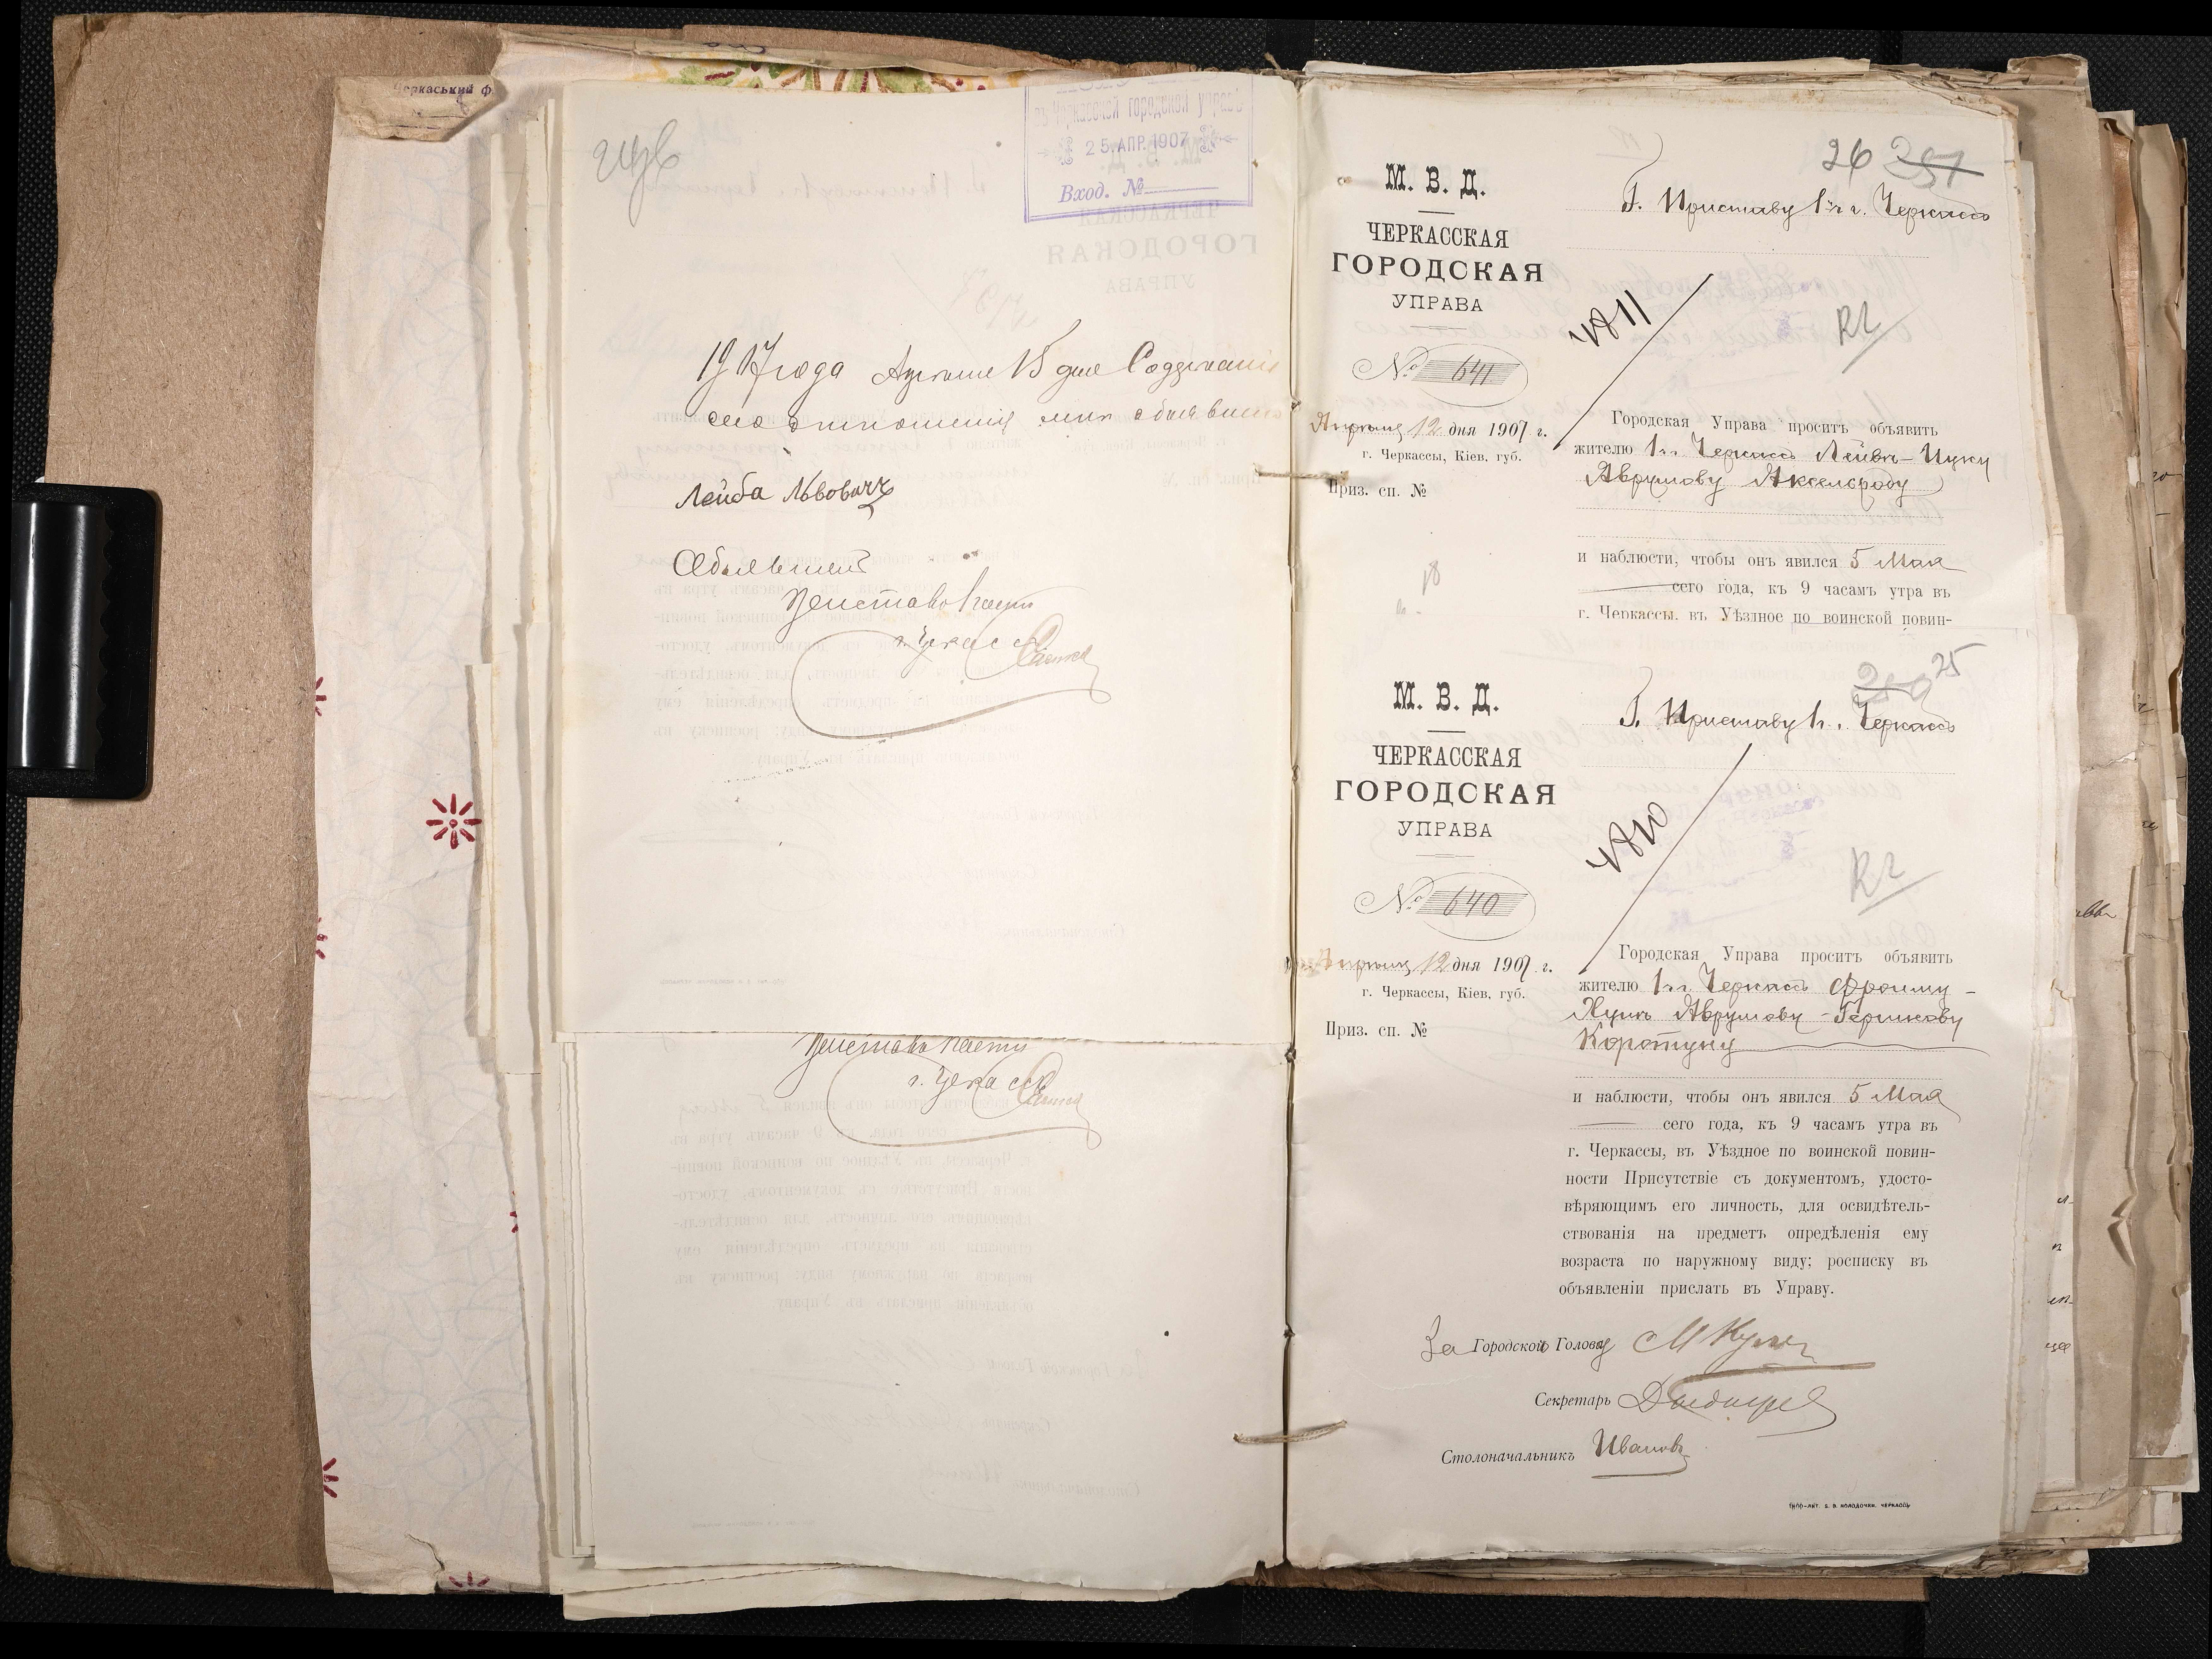 Черкаський ф
въ Черкасской городской управѣ
25.АПР.1907
Вход. №
1907 года Апреля 15 дня Содержаніе
сего отношенія мнѣ объявлено
Лейба Львовичъ
Объявилъ
Приставъ 1 части
г. Черкассъ
Приставъ 1 части
г. Черкассъ
26 257
М. В. Д.
ЧЕРКАССКАЯ
ГОРОДСКАЯ
УПРАВА
№ 641
Апрѣля 12 дня 1907 г.
г. Черкассы, Кіев. губ.
Приз. сп. №
18
Г. Приставу 1 ч. г. Черкассъ
Городская Управа проситъ объявить
жителю г. Черкассъ Лейвѣ-Ицку
Аврумову Аксельроду
и наблюсти, чтобы онъ явился 5 Мая
сего года, къ 9 часамъ утра въ
г. Черкассы, въ Уѣздное по воинской повин-
25
М. В. Д.
ЧЕРКАССКАЯ
ГОРОДСКАЯ
УПРАВА
№ 640
Апрѣля 12 дня 1907 г.
г. Черкассы, Кіев. губ.
Приз. сп. №
Г. Приставу 1 ч. г. Черкассъ
Городская Управа проситъ объявить
жителю г. Черкассъ Фроиму-
Аврумову-Гершкову
Коротуну
и наблюсти, чтобы онъ явился 5 Мая
сего года, къ 9 часамъ утра въ
г. Черкассы, въ Уѣздное по воинской повин-
ности Присутствіе съ документомъ, удосто-
вѣряющимъ его личность, для освидѣтель-
ствованія на предметъ опредѣленія ему
возраста по наружному виду; росписку въ
объявленіи прислать въ Управу.
За Городской Голову
Секретарь
Столоначальникъ Ивановъ
ЧЕРКАССЫ